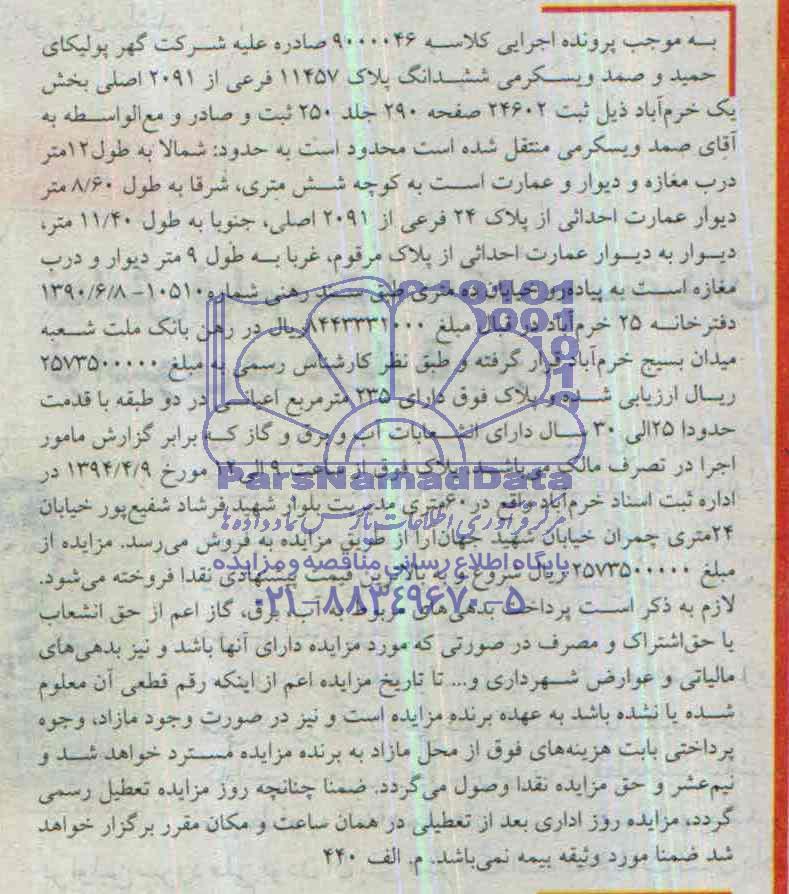 به موجب پرونده اجرایی کلاسه ۹۰۰۰۰۴۶ صادره علیه شرکت گهر پولیکای
حمید و صمد ویسکرمی ششدانگ پلاک ۱۱۴۵۷ فرعی از ۲۰۹۱ اصلی بخش
یک خرم‌آباد ذیل ثبت ۲۴۶۰۲ صفحه ۲۹۰ جلد ۲۵۰ ثبت و صادر و مع‌الواسطه به
آقای صمد ویسکرمی منتقل شده است محدود است به حدود: شمالا به طول۱۲متر
درب مغازه و دیوار و عمارت است به کوچه شش متری، شرقا به طول ۸/۶۰ متر
دیوار عمارت احداثی از پلاک ۲۴ فرعی از ۲۰۹۱ اصلی، جنوبا به طول ۱۱/۴۰ متر،
دیوار به دیوار عمارت احداثی از پلاک مرقوم، غربا به طول ۹ متر دیوار و درب
مغازه است به پیاده‌رو خیابان ده متری طبق سند رهنی شماره۱۰۵۱۰- ۱۳۹۰/۶/۸
دفترخانه ۲۵ خرم‌آباد در قبال مبلغ ۸۴۴۳۳۳۱۰۰۰ریال در رهن بانک ملت شعبه
میدان بسیج خرم‌آباد قرار گرفته و طبق نظر کارشناس رسمی به مبلغ ۲۵۷۳۵۰۰۰۰۰
ریال ارزیابی شده و پلاک فوق دارای ۲۳۵ مترمربع اعیانی در دو طبقه با قدمت
حدودا ۲۵الی ۳۰ سال دارای انشعابات آب و برق و گاز که برابر گزارش مامور
اجرا در تصرف مالک می‌باشد. پلاک فوق از ساعت ۹ الی ۱۲ مورخ ۱۳۹۴/۴/۹ در
اداره ثبت اسناد خرم‌آباد واقع در ۶۰متری مدیریت بلوار شهید فرشاد شفیع‌پور خیابان
۲۴متری چمران خیابان شهید جهان‌آرا از طریق مزایده به فروش می‌رسد. مزایده از
مبلغ ۲۵۷۳۵۰۰۰۰۰ ریال شروع و به بالاترین قیمت پیشنهادی نقدا فروخته می‌شود.
لازم به ذکر است پرداخت بدهی‌های مربوط به آب، برق، گاز اعم از حق انشعاب
یا حق‌اشتراک و مصرف در صورتی که مورد مزایده دارای آنها باشد و نیز بدهی‌های
مالیاتی و عوارض شهرداری و... تا تاریخ مزایده اعم از اینکه رقم قطعی آن معلوم
شده یا نشده باشد به عهده برنده مزایده است و نیز در صورت وجود مازاد، وجوه
پرداختی بابت هزینه‌های فوق از محل مازاد به برنده مزایده مسترد خواهد شد و
نیم‌عشر و حق مزایده نقدا وصول می‌گردد. ضمنا چنانچه روز مزایده تعطیل رسمی
گردد، مزایده روز اداری بعد از تعطیلی در همان ساعت و مکان مقرر برگزار خواهد
شد ضمنا مورد وثیقه بیمه نمی‌باشد. م. الف ۴۴۰
ParsNamadData
مرکز فرآوری اطلاعات پارس نماد داده‌ها
پایگاه اطلاع رسانی مناقصه و مزایده
۰۲۱-۸۸۳۴۹۶۷۰-۵